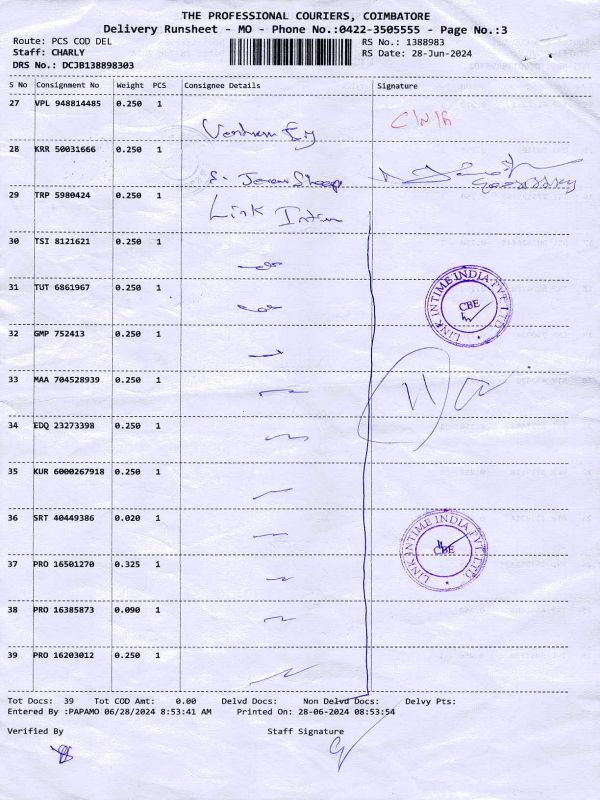 THE PROFESSIONAL COURIERS, COIMBATORE
Delivery Runsheet - MO - Phone No.:0422-3505555 - Page No.:3
Route: PCS COD DEL RS No.: 1388983
Staff: CHARLY RS Date: 28-Jun-2024
DRS No.: DCJB138898303
S No Consignment No Weight PCS Consignee Details Signature
27 VPL 948814485 0.250 1
28 KRR 50031666 0.250 1
29 TRP 5980424 0.250 1 Link
30 TSI 8121621 0.250 1
31 TUT 6861967 0.250 1 LINK INTIME INDIA PVT. LTD. CBE
32 GMP 752413 0.250 1
33 MAA 704528939 0.250 1 11
34 EDQ 23273398 0.250 1
35 KUR 6000267918 0.250 1
36 SRT 40449386 0.020 1 LINK INTIME INDIA PVT. LTD. CBE
37 PRO 16501270 0.325 1
38 PRO 16385873 0.090 1
39 PRO 16203012 0.250 1
Tot Docs: 39 Tot COD Amt: 0.00 Delvd Docs: Non Delvd Docs: Delvy Pts:
Entered By :PAPAMO 06/28/2024 8:53:41 AM Printed On: 28-06-2024 08:53:54
Verified By Staff Signature